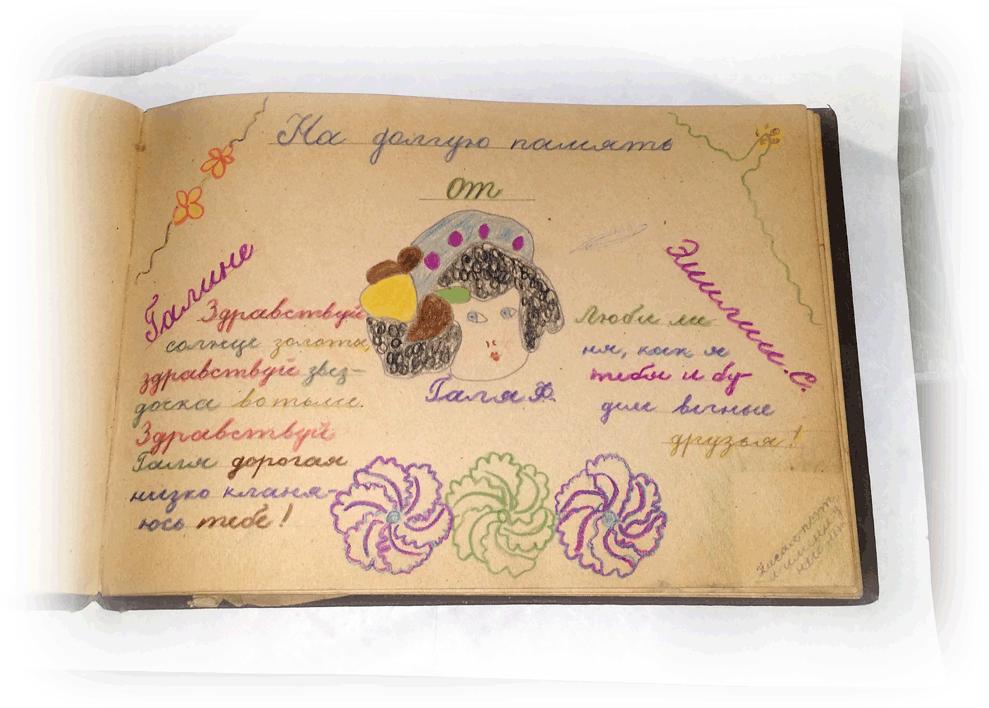 На долгую память
от
Галине
Эмилии. С.
Здравствуй
солнце золоты,
здравствуй звез-
доска во тьме.
Здравствуй
Галя дорогая
низко кланя-
юсь тебе!
Галя Ф.
Люби ме
ня, как я
тебя и бу
дем вечные
друзья!